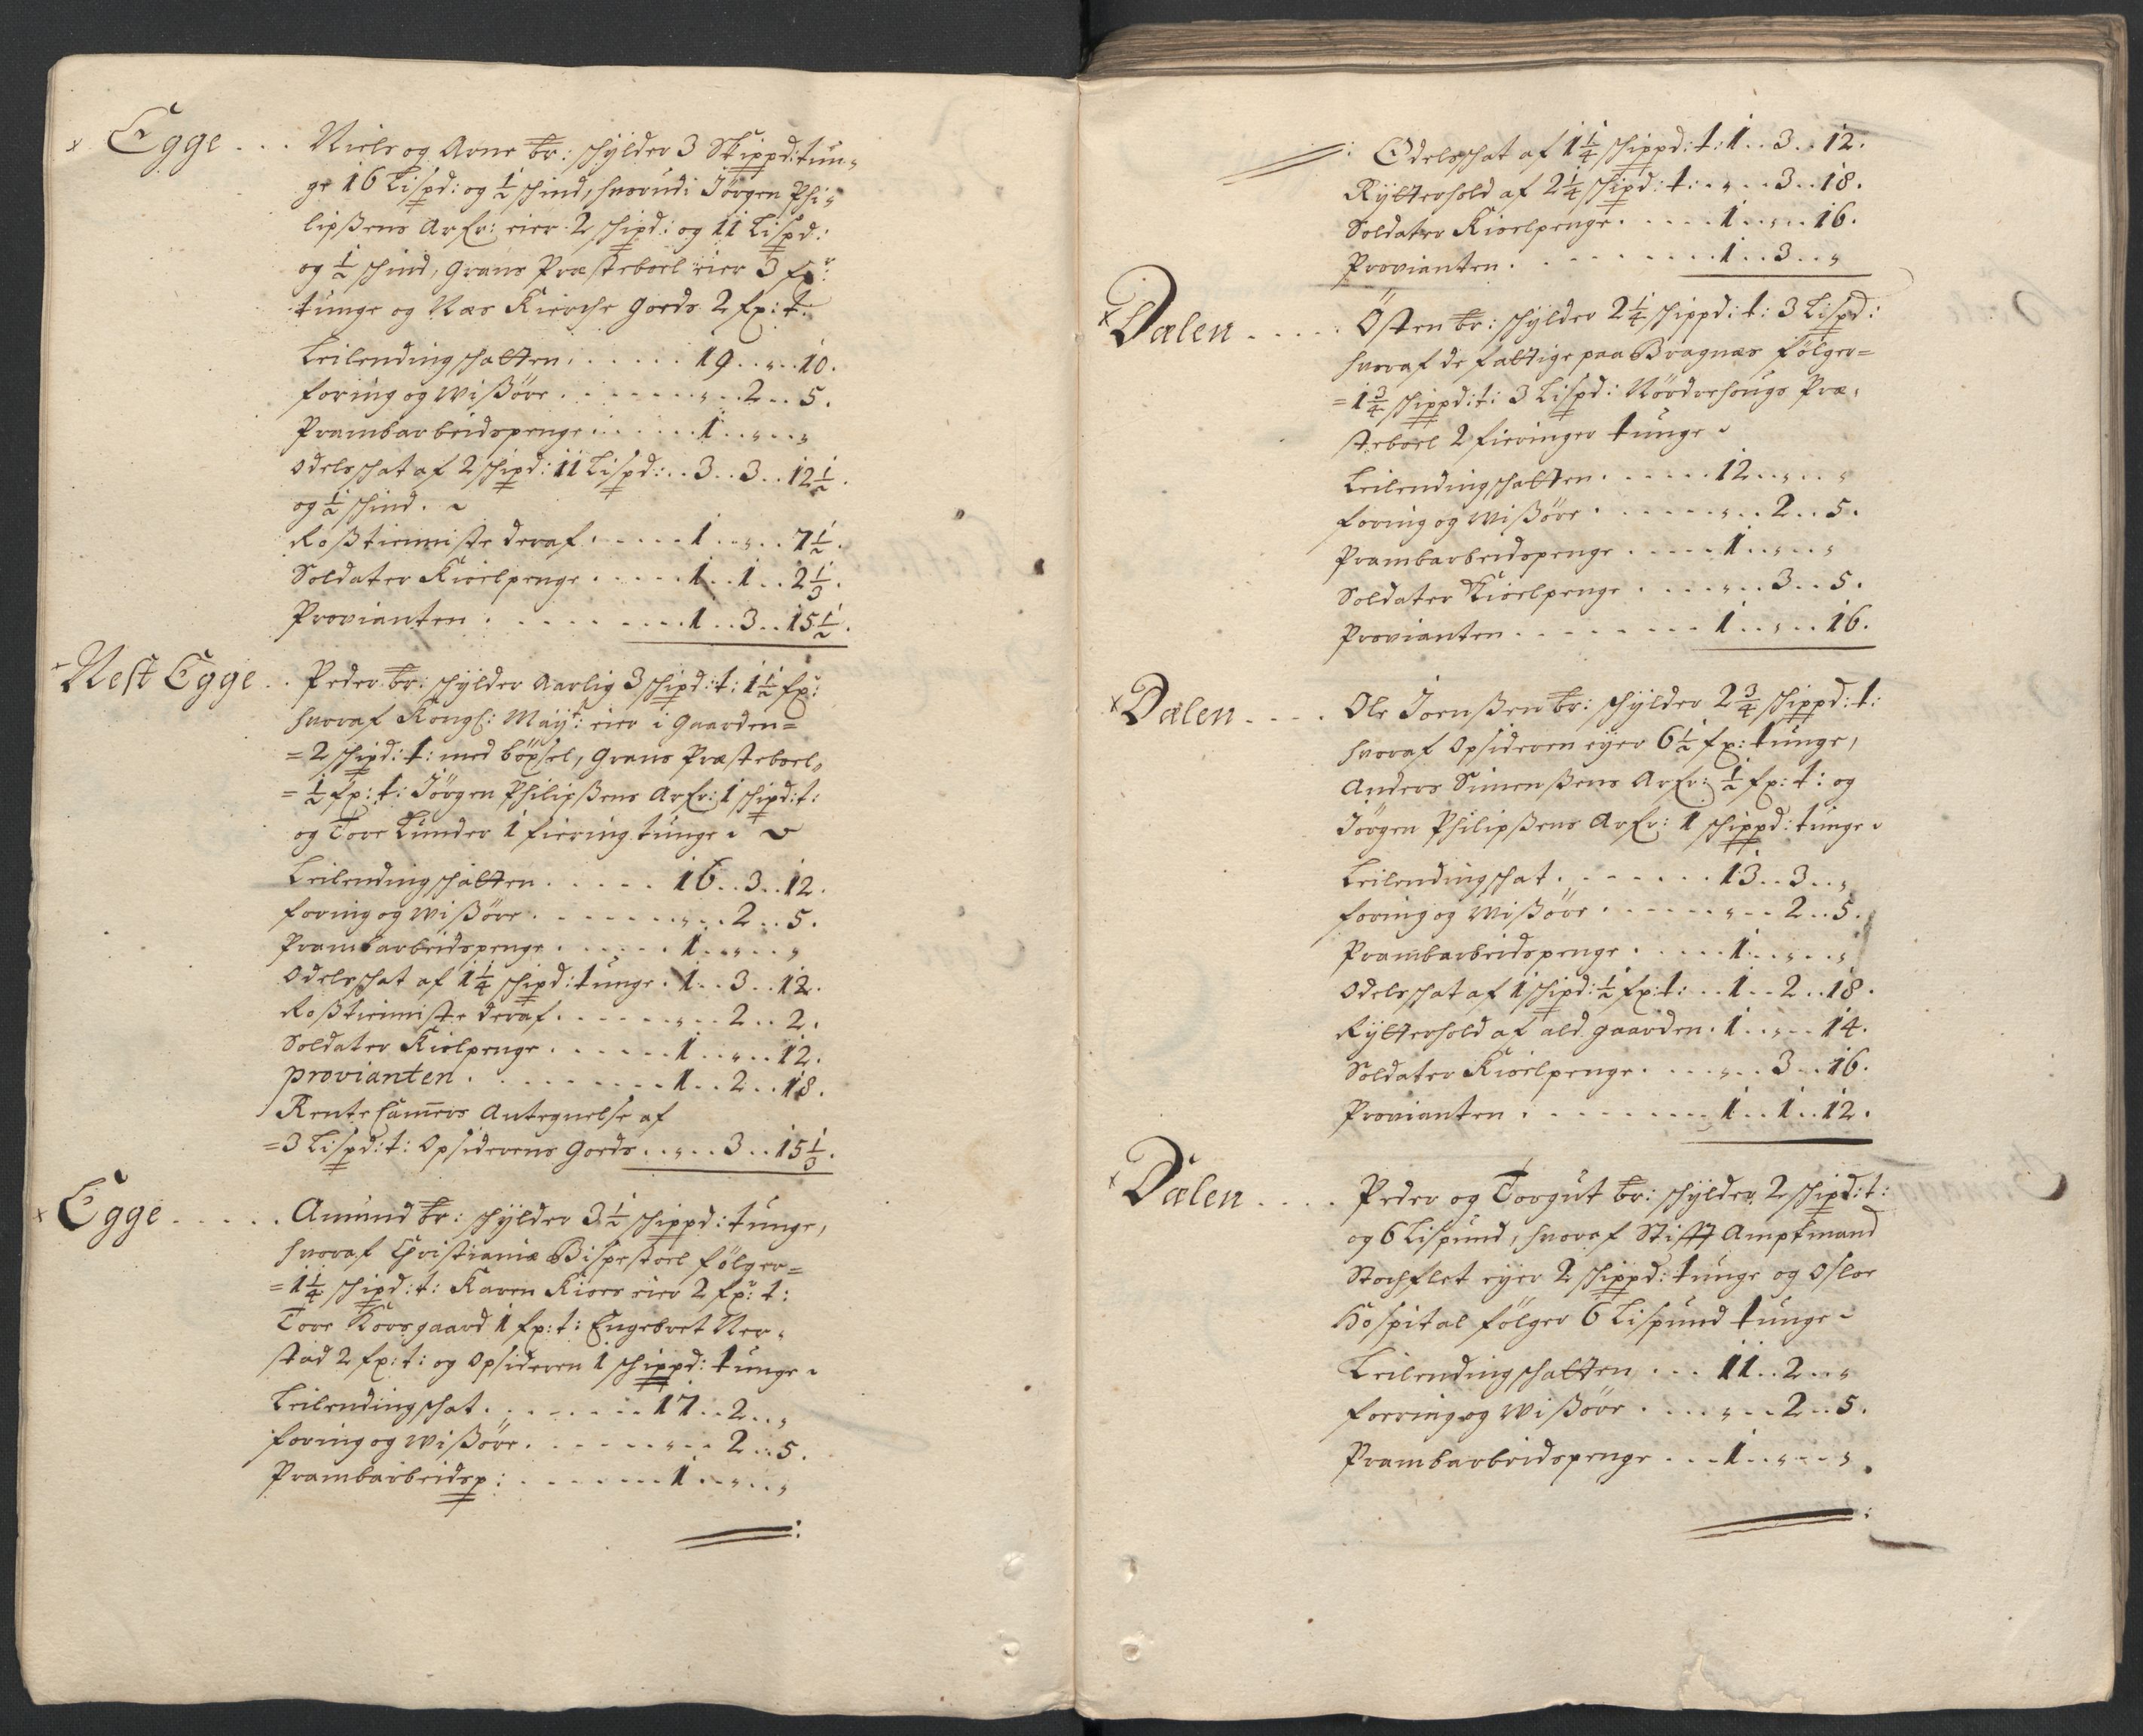 x Egge . . . Niels og Arne br: schÿlder 3 Skippd: tun-
ge 16 Lispd: og ½ schind, hvorudi Jörgen Phi-
lipßens Arfr: eier 2 schipd: og 11 Lispd:
og ½ schind, Grans Præsteboel eier 3 fr:
tunge og Næs Kierche Goeds 2 fr: t:
Leilendingschatten . . . . . 19 . . „ . . 10.
foring og Wißöre . . . . . . „ . . 2 . . 5.
Prambarbeidspenge . . . . . 1 . . „ . . „
Odelsschat af 2 schipd: 11 Lispd: . . 3 . . 3 . . 12½.
og ½ schind.
Roßtienniste deraf . . . . . 1 . . „ . . 7½.
Soldater Kioelpenge . . . . . 1 . . 1 . . 2⅓.
Provianten . . . . . . . . . 1 . . 3 . . 15½.
x Nest Egge . . Peder br: schÿlder Aarlig 3 schipd: t: 1½ fr:
hvoraf Kongl: Maÿt: eier i Gaarden =
= 2 schipd: t: med böxsel, Grans Præsteboel
= ½ fr: t: Jörgen Philipßens Arfr: 1 schipd: t:
og Tore Lunder 1 fiering tunge
Leilendingschatten . . . . . 16 . . 3 . . 12.
foring og Wißöre . . . . . . „ . . 2 . . 5.
Prambarbeidspenge . . . . . 1 . . „ . . „
Odelsschat af 1¼ schipd: tunge . 1 . . 3 . . 12.
Roßtienniste deraf . . . . . „ . . 2 . . 2.
Soldater Kiolpenge . . . . . 1 . . „ . . 12.
provianten . . . . . . . . . 1 . . 2 . . 18.
Rente Camers Antegnelse af
= 3 Lispd: t: Opsiderens Goeds . . „ . . 3 . . 15⅓.
x Egge . . . . . Amund br: schÿlder 3½ schippd: tunge,
hvoraf Christianiæ Bispestoel fölger =
= 1¼ schipd: t: Karen Kioes eier 2 fr: t:
Tore Korsgaard 1 fr: t: Engebret Ner-
stad 2 fr: t: og Opsideren 1 schippd: tunge
Leilendingschat . . . . . . . 17 . . 2 . . „
foring og Wißöre . . . . . . „ . . 2 . . 5.
Prambarbeidsp: . . . . . . . 1 . . „ . . „
Odelsschat af 1¼ schippd: t: 1 . . 3 . . 12.
Rÿtterhold af 2¼ schipd: t: . . „ . . 3 . . 18.
Soldater Kioelpenge . . . . . 1 . . „ . . 16.
Provianten . . . . . . . . . 1 . . 3 . . „
x Dalen . . . . Östen br: schÿlder 2¼ schippd: t: 3 Lispd:
hvoraf de fattige paa Bragnæs fölger =
= 1¾ schippd: t: 3 Lispd: Nördrehougs Præ-
steboel 2 fieringer tunge
Leilendingschatten . . . . . 12 . . „ . . „
foring og Wißöre . . . . . . „ . . 2 . . 5.
Prambarbeidspenge . . . . . 1 . . „ . . „
Soldater Kioelpenge . . . . „ . . 3 . . 5.
Provianten . . . . . . . . . 1 . . „ . . 16.
x Dalen . . . . Ole Joenßen br: schÿlder 2¾ schippd: t:
hvoraf Opsideren eÿer 6½ fr: tunge,
Anders Simenßens Arfr: ½ fr: t: og
Jörgen Philipßens Arfr: 1 schippd: tunge
Leilendingschat . . . . . . . 13 . . 3 . . „
foring og Wißöre . . . . . . „ . . 2 . . 5.
Prambarbeidspenge . . . . . 1 . . „ . . „
Odelsschat af 1 schipd: ½ fr: t: . . 1 . . 2 . . 18.
Rÿtterhold af ald gaarden . 1 . . „ . . 14.
Soldater Kioelpenge . . . . „ . . 3 . . 16.
Provianten . . . . . . . . . 1 . . 1 . . 12.
x Dalen . . . . Peder og Torgut br: schÿlder 2 schipd: t:
og 6 Lispund, hvoraf Stifft Amptmand
Stochflet eÿer 2 schippd: tunge og Osloe
Hospital fölger 6 Lispund tunge
Leilendingschatten . . . 11 . . 2 . . „
forring og Wißöre . . . . „ . . 2 . . 5.
Prambarbeidspenge . . . 1 . . „ . . „